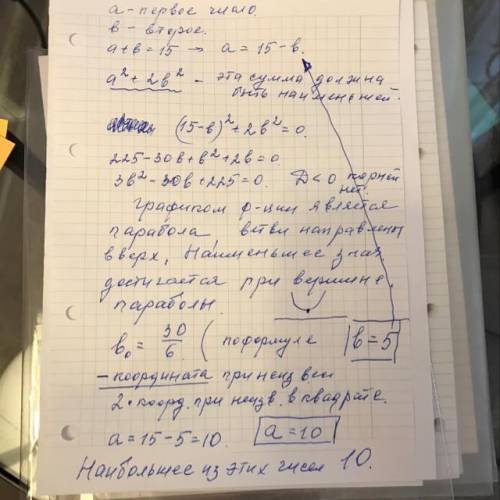 а - первое число.
в - второе.
а+в=15 → а = 15-в.
а² + 2в² - эта сумма должна
быть наименьшей.
(15-в)² + 2в² = 0.
225-30в+в²+2в=0
3в²-30в+225=0. D<0 корней
нет.
Графиком ф-ции является
парабола ветви направлены
вверх, Наименьшее знач
достигается при вершине
параболы.
в₀ = 30/6 ( по формуле в=5
- координата при неизвест
2•коорд. при неизв. в квадрате.
а=15-5=10. а=10
Наибольшее из этих чисел 10.